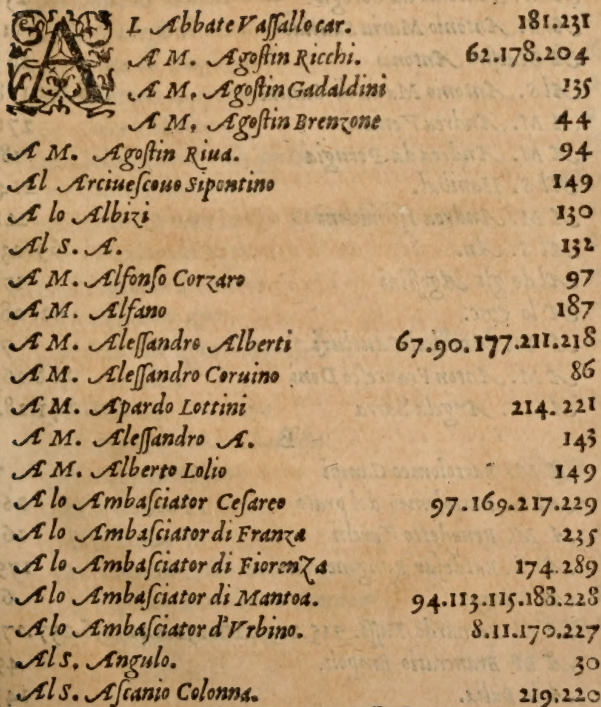 AL Abbate Vaſſallo car. 181.231
A M. Agoſtin Ricchi. 62.178.204
A M. Agoſtin Gadaldini 135
A M. Agoſtin Brenzone 44
A M. Agoſtin Riua. 94
Al Arciueſcouo Sipontino 149
A lo Albizi 130
Al S. A. 132
A M. Alfonſo Corzaro 97
A M. Alfano 187
A M. Aleſſandro Alberti 67.90.177.211.218
A M. Aleſſandro Coruino 86
A M. Apardo Lottini 214.221
A M. Aleſſandro A. 143
A M. Alberto Lolio 149
A lo Ambaſciator Ceſareo 97.169.217.229
A lo Ambaſciator di Franza 235
A lo Ambaſciator di Fiorenza 174.289
A lo Ambaſciator di Mantoa. 94.113.115.188.228
A lo Ambaſciator d'Vrbino. 8.11.170.227
Al S. Angulo. 30
Al S. Aſcanio Colonna. 219.220